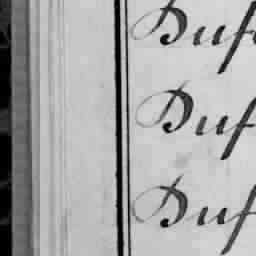 Duf
Duf
Duf